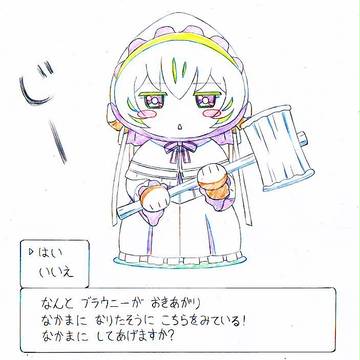 じー
▷ はい
いいえ
なんと ブラウニーが おきあがり
なかまに なりたそうに こちらをみている!
なかまに してあげますか?